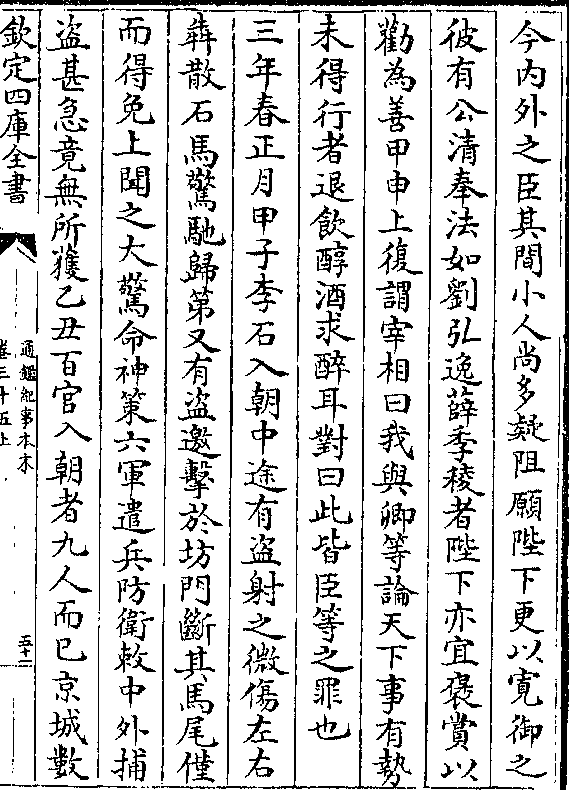 今内外之臣其間小人尚多疑阻願陛下更以寛御之
彼有公清奉法如劉弘逸薛季稜者陛下亦宜褒賞以
勸為善甲申上復謂宰相曰我與卿等論天下事有勢
未得行者退飲醇酒求醉耳對曰此皆臣等之罪也
三年春正月甲子李石入朝中途有盜射之微傷左右
犇散石馬驚馳歸第又有盜邀擊於坊門斷其馬尾僅
而得免上聞之大驚命神策六軍遣兵防衛敕中外捕
盜甚急竟無所獲乙丑百官入朝者九人而已京城數
欽定四庫全書
通鑑紀事本末
卷三十五上
五十二